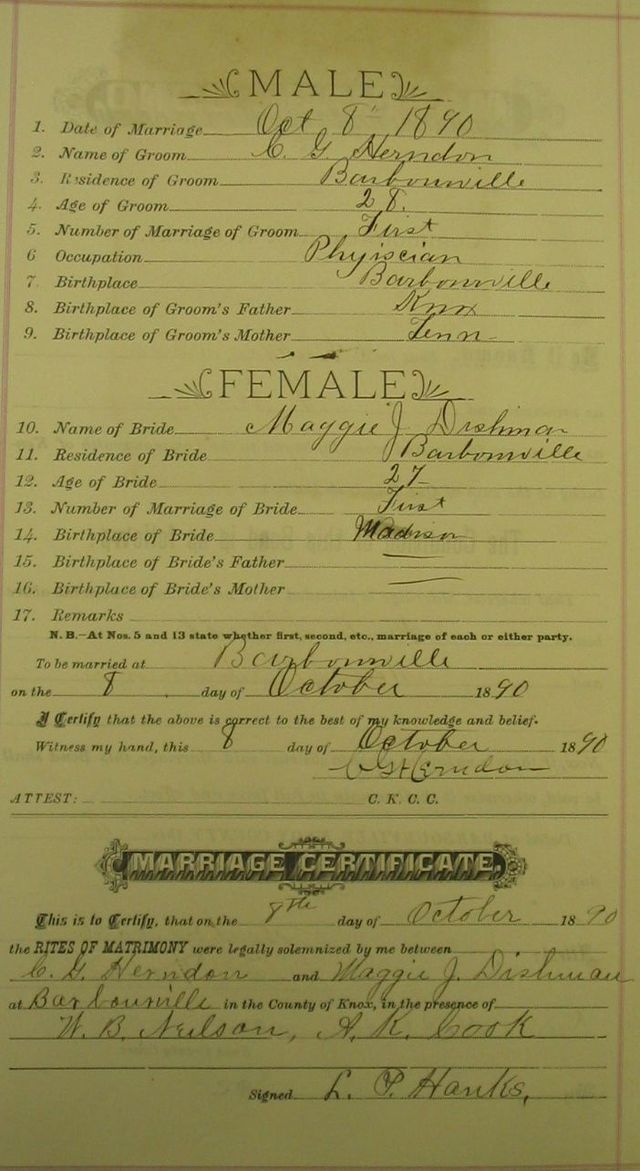 MALE
1. Date of Marriage Oct 8 1890
2. Name of Groom C. G. Herndon
3. Residence of Groom Barbourville
4. Age of Groom 28.
5. Number of Marriage of Groom First
6 Occupation Phyiscian
7 Birthplace Barbourville
8. Birthplace of Groom's Father Knox
9. Birthplace of Groom's Mother Tenn
FEMALE
10. Name of Bride Maggie J Dishman
11. Residence of Bride Barbourville
12. Age of Bride 27
13. Number of Marriage of Bride First
14. Birthplace of Bride Madison
15. Birthplace of Bride's Father
16. Birthplace of Bride's Mother
17. Remarks
N. B.-At Nos. 5 and 13 state whether first, second, etc., marriage of each or either party.
To be married at Barbourville
on the 8 day of October 1890
I Certify that the above is correct to the best of my knowledge and belief.
Witness my hand, this 8 day of October 1890
C G Herndon
ATTEST: C. K. C. C.
MARRIAGE CERTIFICATE.
This is to Certify, that on the 8th day of October 1890
the RITES OF MATRIMONY were legally solemnized by me between
C. G. Herndon and Maggie J. Dishman
at Barbourville in the County of Knox, in the presence of
W. B. Neilson, A. K. Cook
Signed L. P. Hanks,